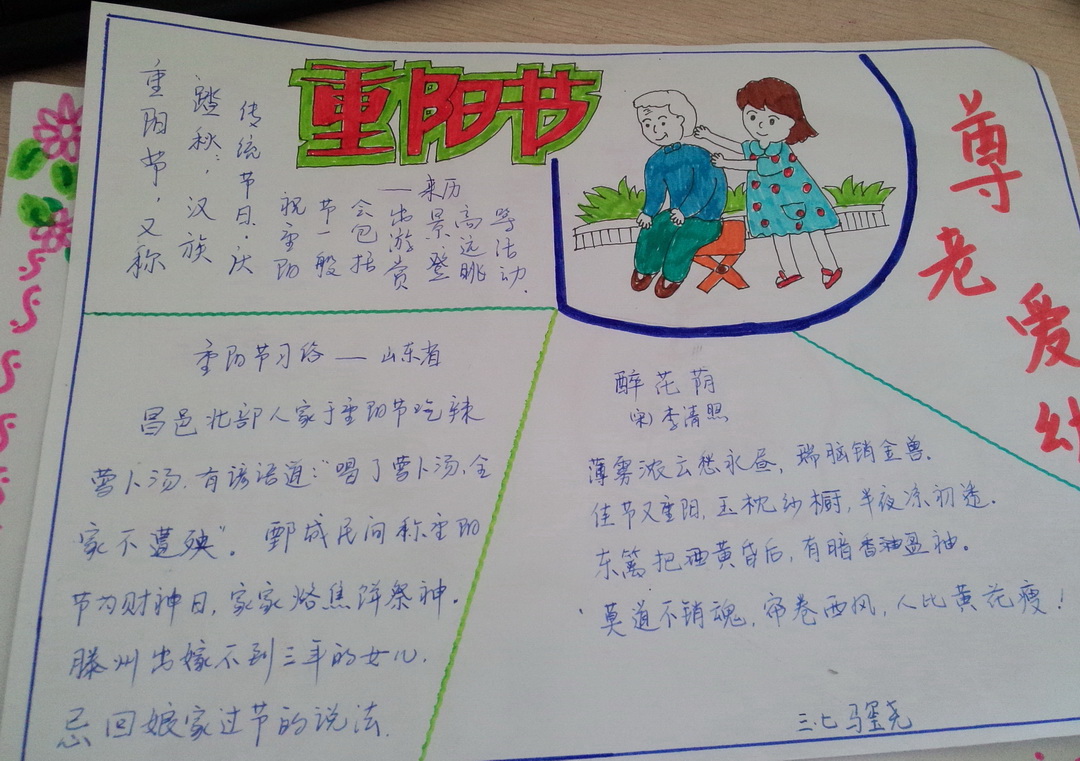 重阳节
——来历
重阳节,又称
踏秋,汉族
传统节日.庆
祝重阳
节一般
会包括
出游赏
景、登
高远眺
等活动.
尊老爱幼
重阳节习俗——山东省
昌邑北部人家于重阳节吃辣
萝卜汤.有谚语道:“喝了萝卜汤,全
家不遭殃”。鄄城民间称重阳
节为财神日,家家烙焦饼祭神.
滕州出嫁不到三年的女儿.
忌回娘家过节的说法.
醉花荫
(宋)李清照
薄雾浓云愁永昼,瑞脑销金兽.
佳节又重阳,玉枕纱橱,半夜凉初透.
东篱把酒黄昏后,有暗香盈袖。
莫道不销魂,帘卷西风,人比黄花瘦!
三.七 马玺尧